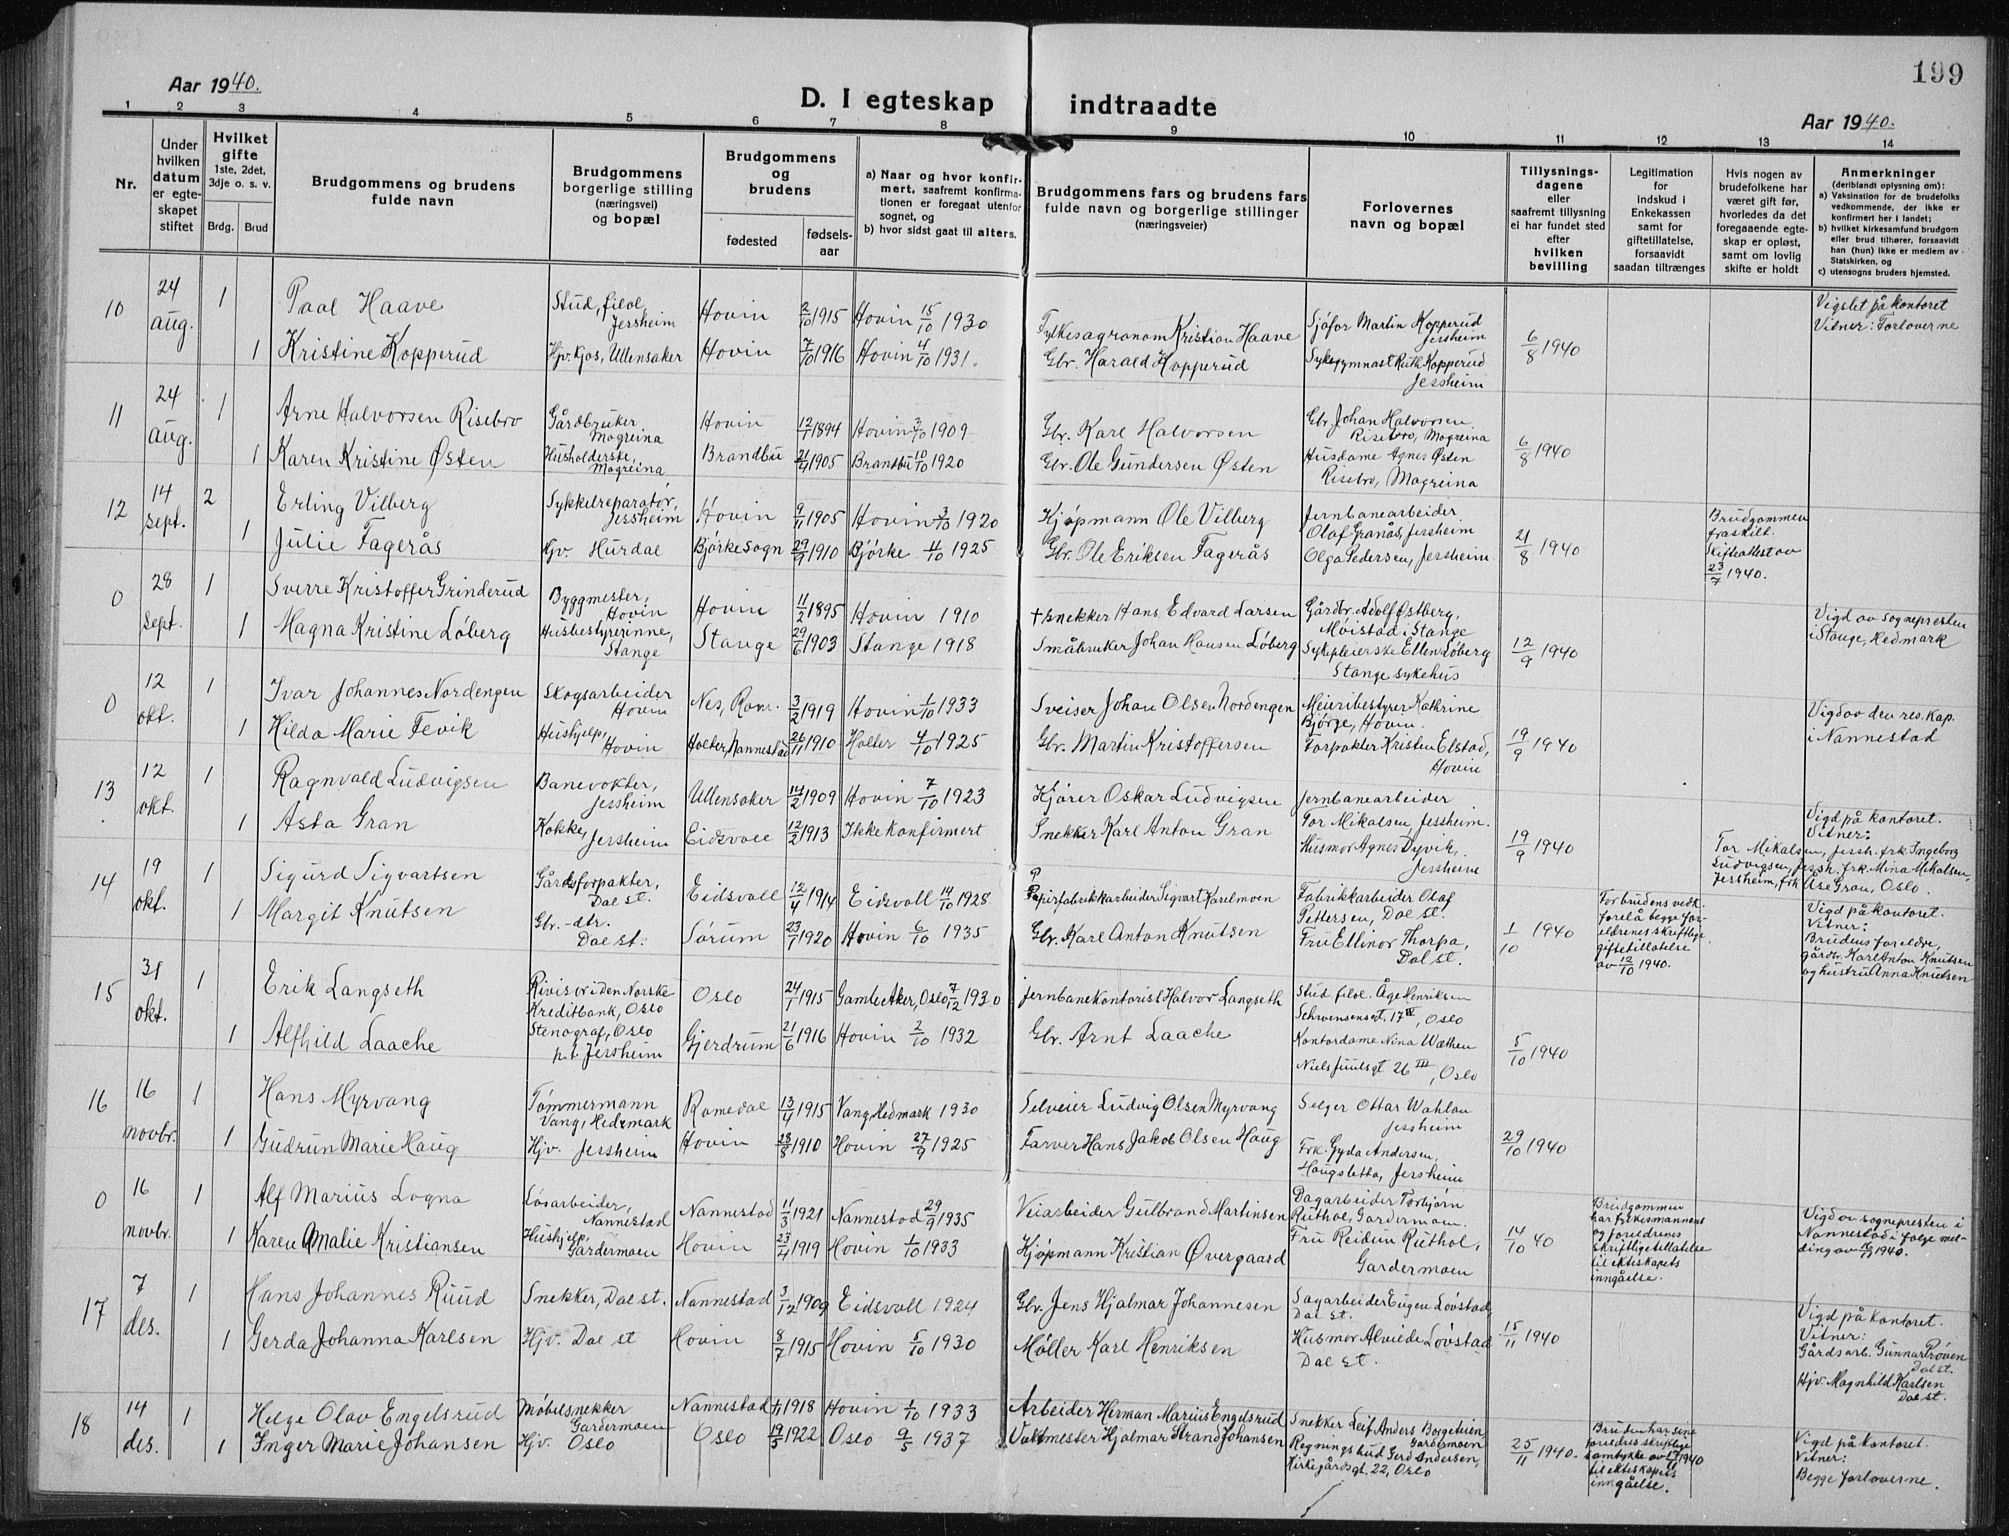 199
Aar 1940.
D. I egteskap indtraadte
Aar 1940.
1 2 3 4 5 6 7 8 9 10 11 12 13 14
Nr.
Under hvilken datum er egteskapet stiftet
Hvilket gifte 1ste, 2det, 3dje o. s. v.
Brdg. Brud
Brudgommens og brudens fulde navn
Brudgommens borgerlige stilling (næringsvei) og bopæl
Brudgommens og brudens
fødested
fødselsaar
a) Naar og hvor konfirmert, saafremt konfirmationen er foregaat utenfor sognet, og
b) hvor sidst gaat til alters.
Brudgommens fars og brudens fars fulde navn og borgerlige stillinger (næringsveier)
Forlovernes navn og bopæl
Tillysningsdagene eller saafremt tillysning ei har fundet sted efter hvilken bevilling
Legitimation for indskud i Enkekassen samt for giftetillatelse, forsaavidt saadan tiltrænges
Hvis nogen av brudefolkene har været gift før, hvorledes da det foregaaende egteskap er opløst, samt om lovlig skifte er holdt
Anmerkninger (deriblandt oplysning om):
a) Vaksination for de brudefolks vedkommende, der ikke er konfirmert her i landet;
b) hvilket kirkesamfund brudgom eller brud tilhører, forsaavidt han (hun) ikke er medlem av Statskirken, og
c) utensogns bruders hjemsted.
10 24 aug. 1 Paal Haave Stud. filol, Jessheim Hovin 2/10 1915 Hovin 15/10 1930 Fylkesagronom Kristian Haave Sjåfør Martin Kopperud Jessheim 6/8 1940 Vigslet på kontoret Vitner: Forloverne
1 Kristine Kopperud Hjv. Kjos, Ullensaker Hovin 7/10 1916 Hovin 4/10 1931. Gbr. Harald Kopperud Sykegymnast Ruth Kopperud Jessheim
11 24 aug. 1 Arne Halvorsen Risebro Gårdbruker Mogreina Hovin 12/7 1894 Hovin 3/10 1909 Gbr. Karl Halvorsen Gbr. Johan Halvorsen Risebro, Mogreina 6/8 1940
1 Karen Kristine Østen Husholderske, Mogreina Brandbu 21/4 1905 Brandbu 10/10 1920 Gbr. Ole Gundersen Østen Husdame Agnes Østen Risebro, Mogreina
12 14 sept. 2 Erling Vilberg Sykkelreparatør, Jessheim Hovin 9/11 1905 Hovin 3/10 1920 Kjøpmann Ole Vilberg Jernbanearbeider Olaf Granås, Jessheim 21/8 1940 Brudgommen fraskilt. Skifteattest av 23/7 1940.
1 Julie Fagerås Hjv. Hurdal Bjørke sogn 29/9 1910 Bjørke 4/10 1925 Gbr. Ole Eriksen Fagerås Olga Pedersen, Jessheim
0 28 sept. 1 Sverre Kristoffer Grinderud Byggmester, Hovin Hovin 11/2 1895 Hovin 1910 + snekker Hans Edvard Larsen Gårdbr. Adolf Østberg, Moistad i Stange 12/9 1940 Vigd av sognepresten i Stange, Hedmark
1 Magna Kristine Løberg Husbestyrerinne, Stange Stange 29/6 1903 Stange 1918 Småbruker Johan Hansen Løberg Sykepleierske Ellen Løberg Stange sykehus
0 12 okt. 1 Ivar Johannes Nordengen Skogsarbeider Hovin Nes, Rom. 3/2 1919 Hovin 1/10 1933 Sveiser Johan Olsen Nordengen Meieribestyrer Kathrine Bjørge, Hovin. 19/9 1940 Vigd av den res. kap. i Nannestad
1 Hilda Marie Fevik Hushjelp, Hovin Holter, Nannestad 26/11 1910 Holter 4/10 1925 Gbr. Martin Kristoffersen Forpakter Kristen Elstad, Hovin
13 12 okt. 1 Ragnvald Ludvigsen Banevokter, Jessheim Ullensaker 14/2 1909 Hovin 7/10 1923 Kjører Oskar Ludvigsen Jernbanearbeider Tor Mikalsen, Jessheim. 19/9 1940 Vigd på kontoret. Vitner: Tor Mikalsen, Jessh. frk. Ingeborg Ludvigsen, Jessh. frk. Mina Mikalsen, Jessheim, frk. Åse Gran, Oslo.
1 Asta Gran Kokke, Jessheim Eidsvoll 12/2 1913 Ikke konfirmert Snekker Karl Anton Gran Husmor Agnes Dyvik, Jessheim
14 19 okt. 1 Sigurd Sigvartsen Gårdsforpakter, Dal st. Eidsvoll 12/4 1914 Eidsvoll 14/10 1928 Papirfabrikkarbeider Sigvart Karelmoen Fabrikkarbeider Olaf Pettersen, Dal st. 1/10 1940 For brudens vedk. forelå begge foreldrenes skriftlige giftetillatelse av 12/10 1940. Vigd på kontoret. Vitner: Brudens foreldre, gårdbr. Karl Anton Knutsen og hustru Anna Knutsen
1 Margit Knutsen Gbr.-dtr. Dal st. Sørum 23/7 1920 Hovin 6/10 1935 Gbr. Karl Anton Knutsen Fru Ellinor Thorpa, Dal st.
15 31 okt. 1 Erik Langseth Revisor i den Norske Kreditbank, Oslo Oslo 24/1 1915 Gamle Aker, Oslo 7/12 1930 Jernbanekontorist Halvor Langseth Stud. filol. Åge Henriksen Schwensensgt. 17 IV, Oslo 5/10 1940
1 Alfhild Laache Stenograf, Oslo p.t. Jessheim Gjerdrum 21/6 1916 Hovin 2/10 1932 Gbr. Arnt Laache Kontordame Nina Wæthen Niels Juulsgt 26 III, Oslo
16 16 novbr. 1 Hans Myrvang Tømmermann Vang, Hedemark Romedal 13/4 1915 Vang, Hedmark 1930 Selveier Ludvig Olsen Myrvang Selger Ottar Wahlau Jessheim 29/10 1940
1 Gudrun Marie Haug Hjv. Jessheim Hovin 28/8 1910 Hovin 27/9 1925 Farver Hans Jakob Olsen Haug Frk. Gyda Andersen, Haugsletta, Jessheim
0 16 novbr. 1 Alf Marius Logna Løsarbeider, Nannestad Nannestad 11/3 1921 Nannestad 29/9 1935 Veiarbeider Gulbrand Martinsen Dagarbeider Torbjørn Ruthol, Gardermoen. 14/10 40 Brudgommen har fylkesmannens og foreldrenes skriftlige tillatelse til ekteskapets inngåelse. Vigd av sognepresten i Nannestad i følge melding av 16/11 1940.
1 Karen Amalie Kristiansen Hushjelp, Gardermoen Hovin 23/4 1919 Hovin 1/10 1933 Kjøpmann Kristian Overgaard Fru Reidun Ruthol, Gardermoen
17 7 des. 1 Hans Johannes Ruud Snekker, Dal st. Nannestad 3/12 1909 Eidsvoll 1924 Gbr. Jens Hjalmar Johannesen Sagarbeider Eugen Løvstad, Dal st. 15/11 1940 Vigd på kontoret. Vitner: Gårdsarb. Gunnar Prøven Dal st. Hjv. Magnhild Karlsen Dal st.
1 Gerda Johanna Karlsen Hjv. Dal st Hovin 8/7 1915 Hovin 5/10 1930 Møller Karl Henriksen Husmor Alvilde Løvstad Dal st.
18 14 des. 1 Helge Olav Engelsrud Møbelsnekker Gardermoen Nannestad 1918 Hovin 1/10 1933 Arbeider Herman Marius Engelsrud Snekker Leif Anders Borgetien Gardermoen 25/11 1940. Bruden har sine foreldres skriftlige samtykke av 17/11 1940 til ekteskapets inngåelse. Vigd på kontoret. Vitner: Begge forloverne.
1 Inger Marie Johansen Hjv. Oslo Oslo 19/5 1922 Oslo 9/5 1937 Vaktmester Hjalmar Strand Johansen Regningsbud Gerd Andersen, Kirkegårdsgt. 22, Oslo